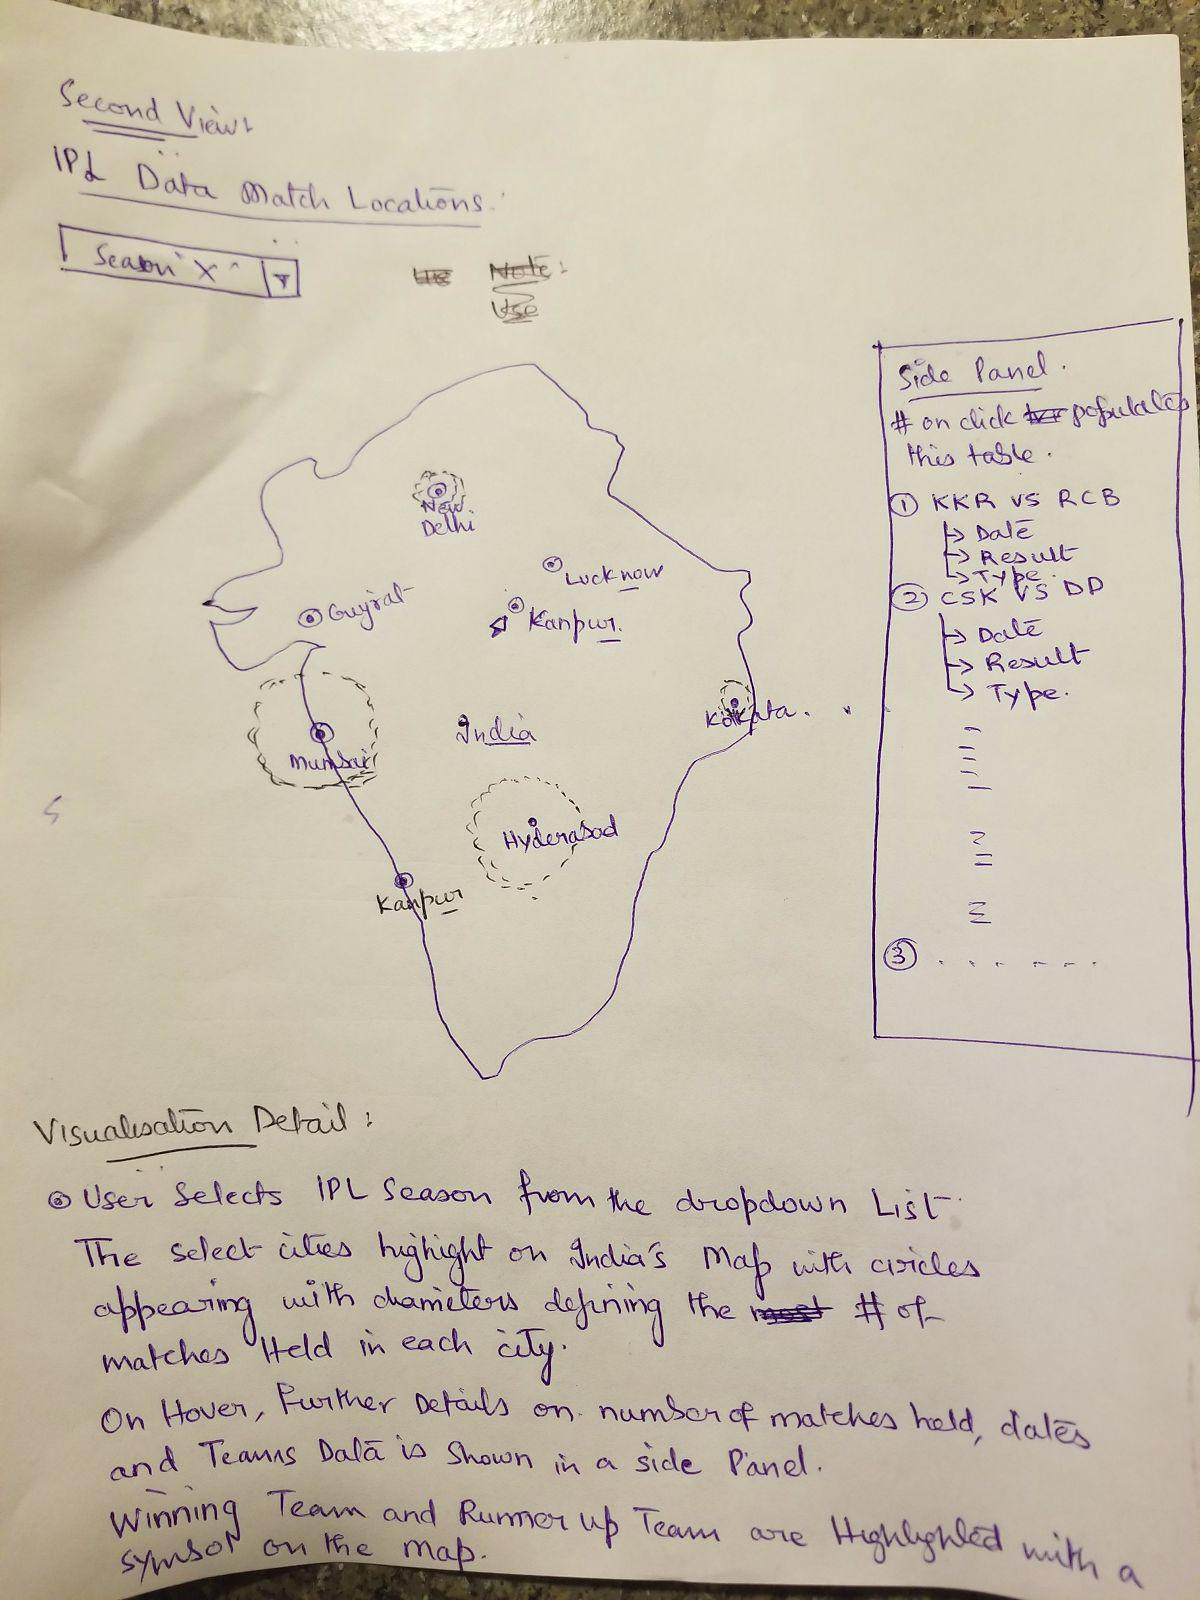 Second View:
IPL Data Match Locations.
Season "X"
Note:
Use
New
Delhi
Lucknow
Gujrat
Kanpur.
Mumbai
India
Kolkata.
Hyderabad
Kanpur
Side Panel.
# on click populates
this table.
① KKR VS RCB
→ Date
→ Result
→ Type.
② CSK VS DD
→ Date
→ Result
→ Type.
③ . . . . . .
Visualisation Detail:
User Selects IPL Season from the dropdown List.
The select cities highight on India's Map with circles
appearing with diameters defining the # of
matches Held in each city.
On Hover, Further Details on number of matches held, dates
and Teams Data is Shown in a side Panel.
Winning Team and Runner up Team are Highlighted with a
symbol on the map.